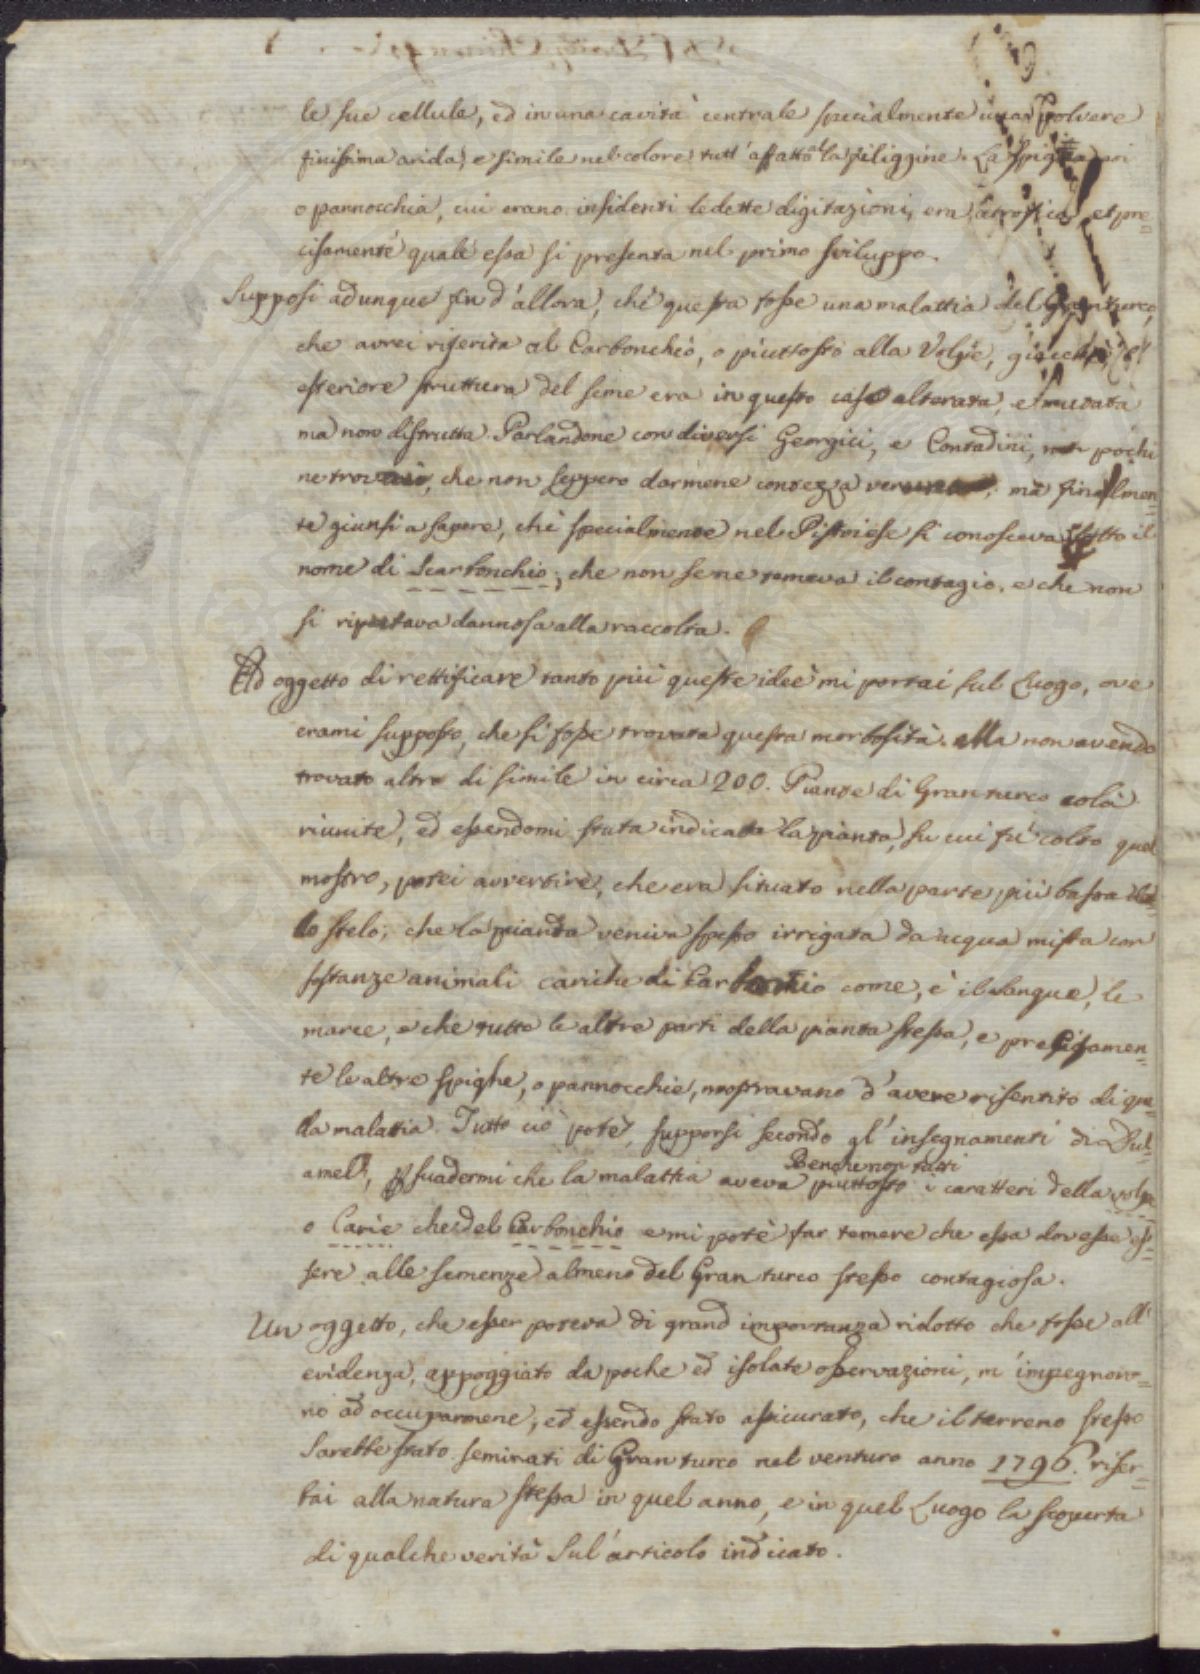 le sue cellule, ed in una cavità centrale specialmente una Polvere
finissima arida, e simile nel colore tutt'affatto alla filiggine. La spiga poi
o pannocchia, cui erano insidenti le dette digitazioni, era atrofica, et pre=
cisamente quale essa si presenta nel primo sviluppo.
Supposi adunque fin d'allora, che questa fosse una malattia del Gran turco,
che avrei riferita al Carbonchio, o piuttosto alla Volpe, giacchè l'
esteriore struttura del seme era in questo caso alterata, e mutata
ma non distrutta. Parlandone con diversi Georgici, e Contadini, non pochi
ne trovai, che non seppero darmene contezza veruna; ma finalmen=
te giunsi a sapere, che specialmente nel Pistoiese si conosceva sotto il
nome di Scarbonchio; che non se ne temeva il contagio, e che non
si riputava dannosa alla raccolta.
Ad oggetto di rettificare tanto più queste idee mi portai sul Luogo, ove
erami supposto, che si fosse trovata questa morbosità. Ma non avendo
trovato altro di simile in circa 200. Piante di Gran turco colà
riunite, ed essendomi stata indicata la pianta, su cui fù colto quel
mostro, potei avvertire, che era situato nella parte più bassa del=
lo stelo; che la pianta veniva spesso irrigata da acqua mista con
sostanze animali cariche di Carbonio come, è il sangue, le
marce, e che tutte le altre parti della pianta stessa, e precisamen=
te le altre spighe, o pannocchie, mostravano d'avere risentito di que=
lla malattia. Tutto ciò potè, supporsi secondo gl'insegnamenti di Du=
amel, persuadermi che la malattia aveva piuttosto i caratteri della volpe
Benche non tutti
o Carie che del Carbonchio e mi potè far temere che essa dovesse es=
sere alle semenze almeno del Gran turco stesso contagiosa.
Un oggetto, che esser poteva di grand importanza ridotto che fosse all'
evidenza, appoggiato da poche ed isolate osservazioni, m'impegnoro=
no ad occuparmene, ed essendo stato assicurato, che il terreno stesso
sarebbe stato seminati di Gran turco nel venturo anno 1796. riser=
bai alla natura stessa in quel anno, e in quel Luogo la scoperta
di qualche verità sul'articolo indicato.